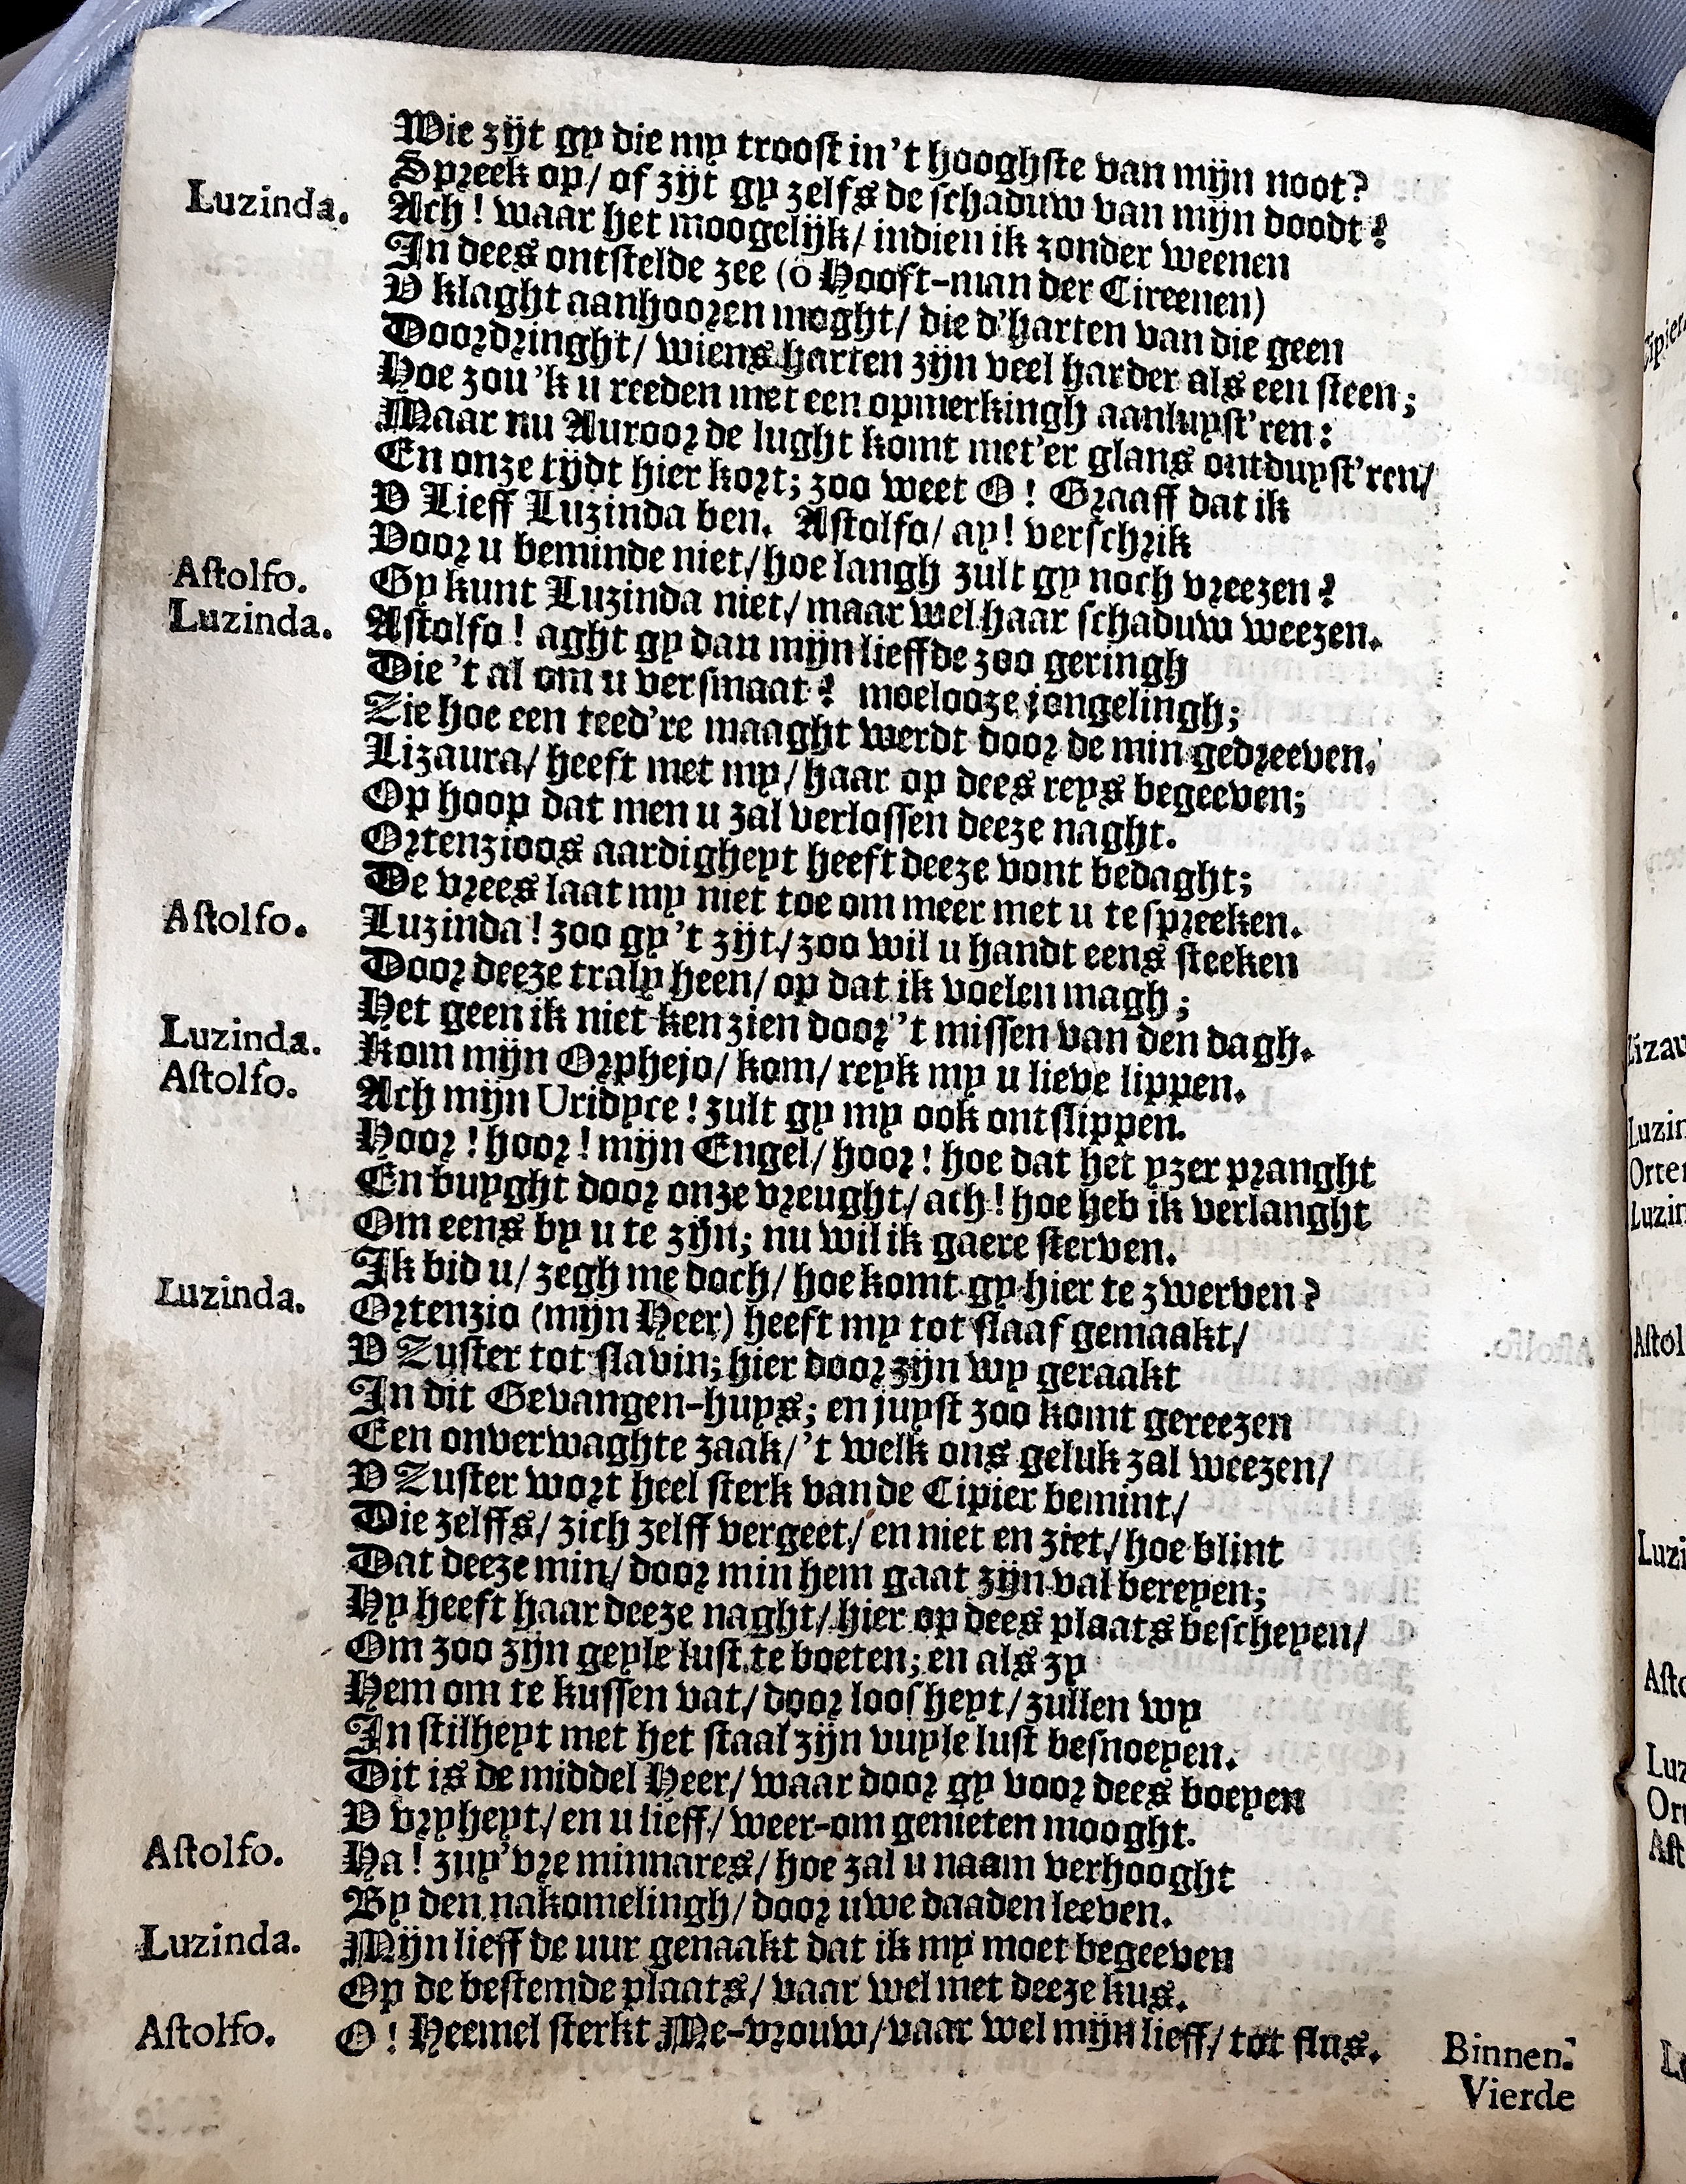 Wie zijt gy die my troost in 't hooghste van mijn noot?
Spreek op/ of zijt gy zelfs de schaduw van mijn doodt?
Luzinda. Ach! waar het moogelijk/ indien ik zonder weenen
In dees ontstelde zee (ô Hooft-man der Cireenen)
U klaght aanhooren moght/ die d'harten van die geen
Doordringht/ wiens harten zijn veel harder als een steen;
Hoe zou 'k u reeden met een opmerkingh aanluyst'ren:
Maar nu Auroor de lught komt met'er glans ontduyst'ren/
En onze tijdt hier kort; zoo weet O! Graaff dat ik
U Lieff Luzinda ben. Astolfo/ ay! verschrik
Voor u beminde niet/ hoe langh zult gy noch vreezen?
Astolfo. Gy kunt Luzinda niet/ maar wel haar schaduw weezen.
Luzinda. Astolfo! aght gy dan mijn lieffde zoo geringh
Die 't al om u versmaat? moelooze jongelingh;
Zie hoe een teed're maaght werdt door de min gedreeven.
Lizaura/ heeft met my/ haar op dees reys begeeven;
Op hoop dat men u zal verlossen deeze naght.
Ortenzioos aardigheyt heeft deeze vont bedaght;
De vrees laat my niet toe om meer met u te spreeken.
Astolfo. Luzinda! zoo gy 't zijt/ zoo wil u handt eens steeken
Door deeze traly heen/ op dat ik voelen magh;
Het geen ik niet ken zien door 't missen van den dagh.
Luzinda. Kom mijn Orphejo/ kom/ reyk my u lieve lippen.
Astolfo. Ach mijn Uridyce! zult gy my ook ontslippen.
Hoor! hoor! mijn Engel/ hoor! hoe dat het yzer pranght
En buyght door onze vreught/ ach! hoe heb ik verlanght
Om eens by u te zijn; nu wil ik gaere sterven.
Ik bid u/ zegh me doch/ hoe komt gy hier te zwerven?
Luzinda. Ortenzio (mijn Heer) heeft my tot slaaf gemaakt/
U Zuster tot slavin; hier door zijn wy geraakt
In dit Gevangen-huys; en juyst zoo komt gereezen
Een onverwaghte zaak/ 't welk ons geluk zal weezen/
U Zuster wort heel sterk van de Cipier bemint/
Die zelffs/ zich zelff vergeet/ en niet en ziet/ hoe blint
Dat deeze min/ door min hem gaat zijn val bereyen;
Hy heeft haar deeze naght/ hier op dees plaats bescheyen/
Om zoo zijn geyle lust te boeten; en als zy
Hem om te kussen vat/ door loosheyt/ zullen wy
In stilheyt met het staal zijn vuyle lust besnoeyen.
Dit is de middel Heer/ waar door gy voor dees boeyen
U vryheyt/ en u lieff/ weer-om genieten mooght.
Astolfo. Ha! zuy'vre minnares/ hoe zal u naam verhooght
By den nakomelingh/ door uwe daaden leeven.
Luzinda. Mijn lieff de uur genaakt dat ik my moet begeeven
Op de bestemde plaats/ vaar wel met deeze kus.
Astolfo. O! Heemel sterkt Me-vrouw/ vaar wel mijn lieff/ tot flus. Binnen.
Vierde